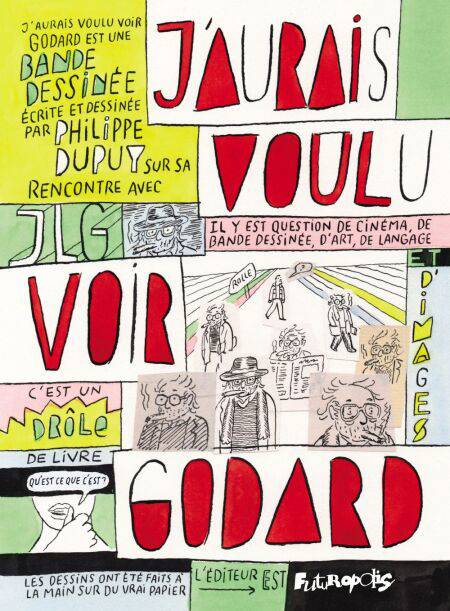 J'AURAIS VOULU VOIR
GODARD EST UNE
BANDE
DESSINÉE
ÉCRITE ET DESSINÉE
PAR PHILIPPE
DUPUY SUR SA
RENCONTRE AVEC
JLG
J'AURAIS
VOULU
IL Y EST QUESTION DE CINÉMA, DE
BANDE DESSINÉE, D'ART, DE LANGAGE
ET D'IMAGES
VOIR
ROLLE
?
C'EST UN
DRÔLE
DE LIVRE
QU'EST CE QUE C'EST?
GODARD
LES DESSINS ONT ÉTÉ FAITS À
LA MAIN SUR DU VRAI PAPIER
L'ÉDITEUR EST
FUTUROPOLIS